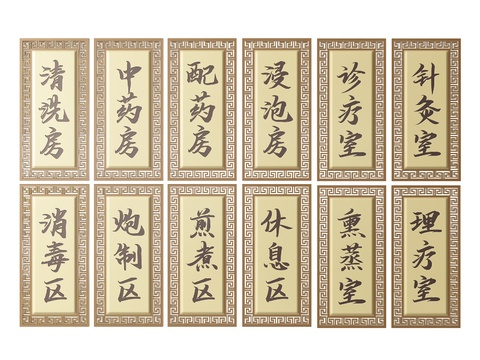 清洗房
中药房
配药房
浸泡房
诊疗室
针灸室
消毒区
炮制区
煎煮区
休息区
熏蒸室
理疗室